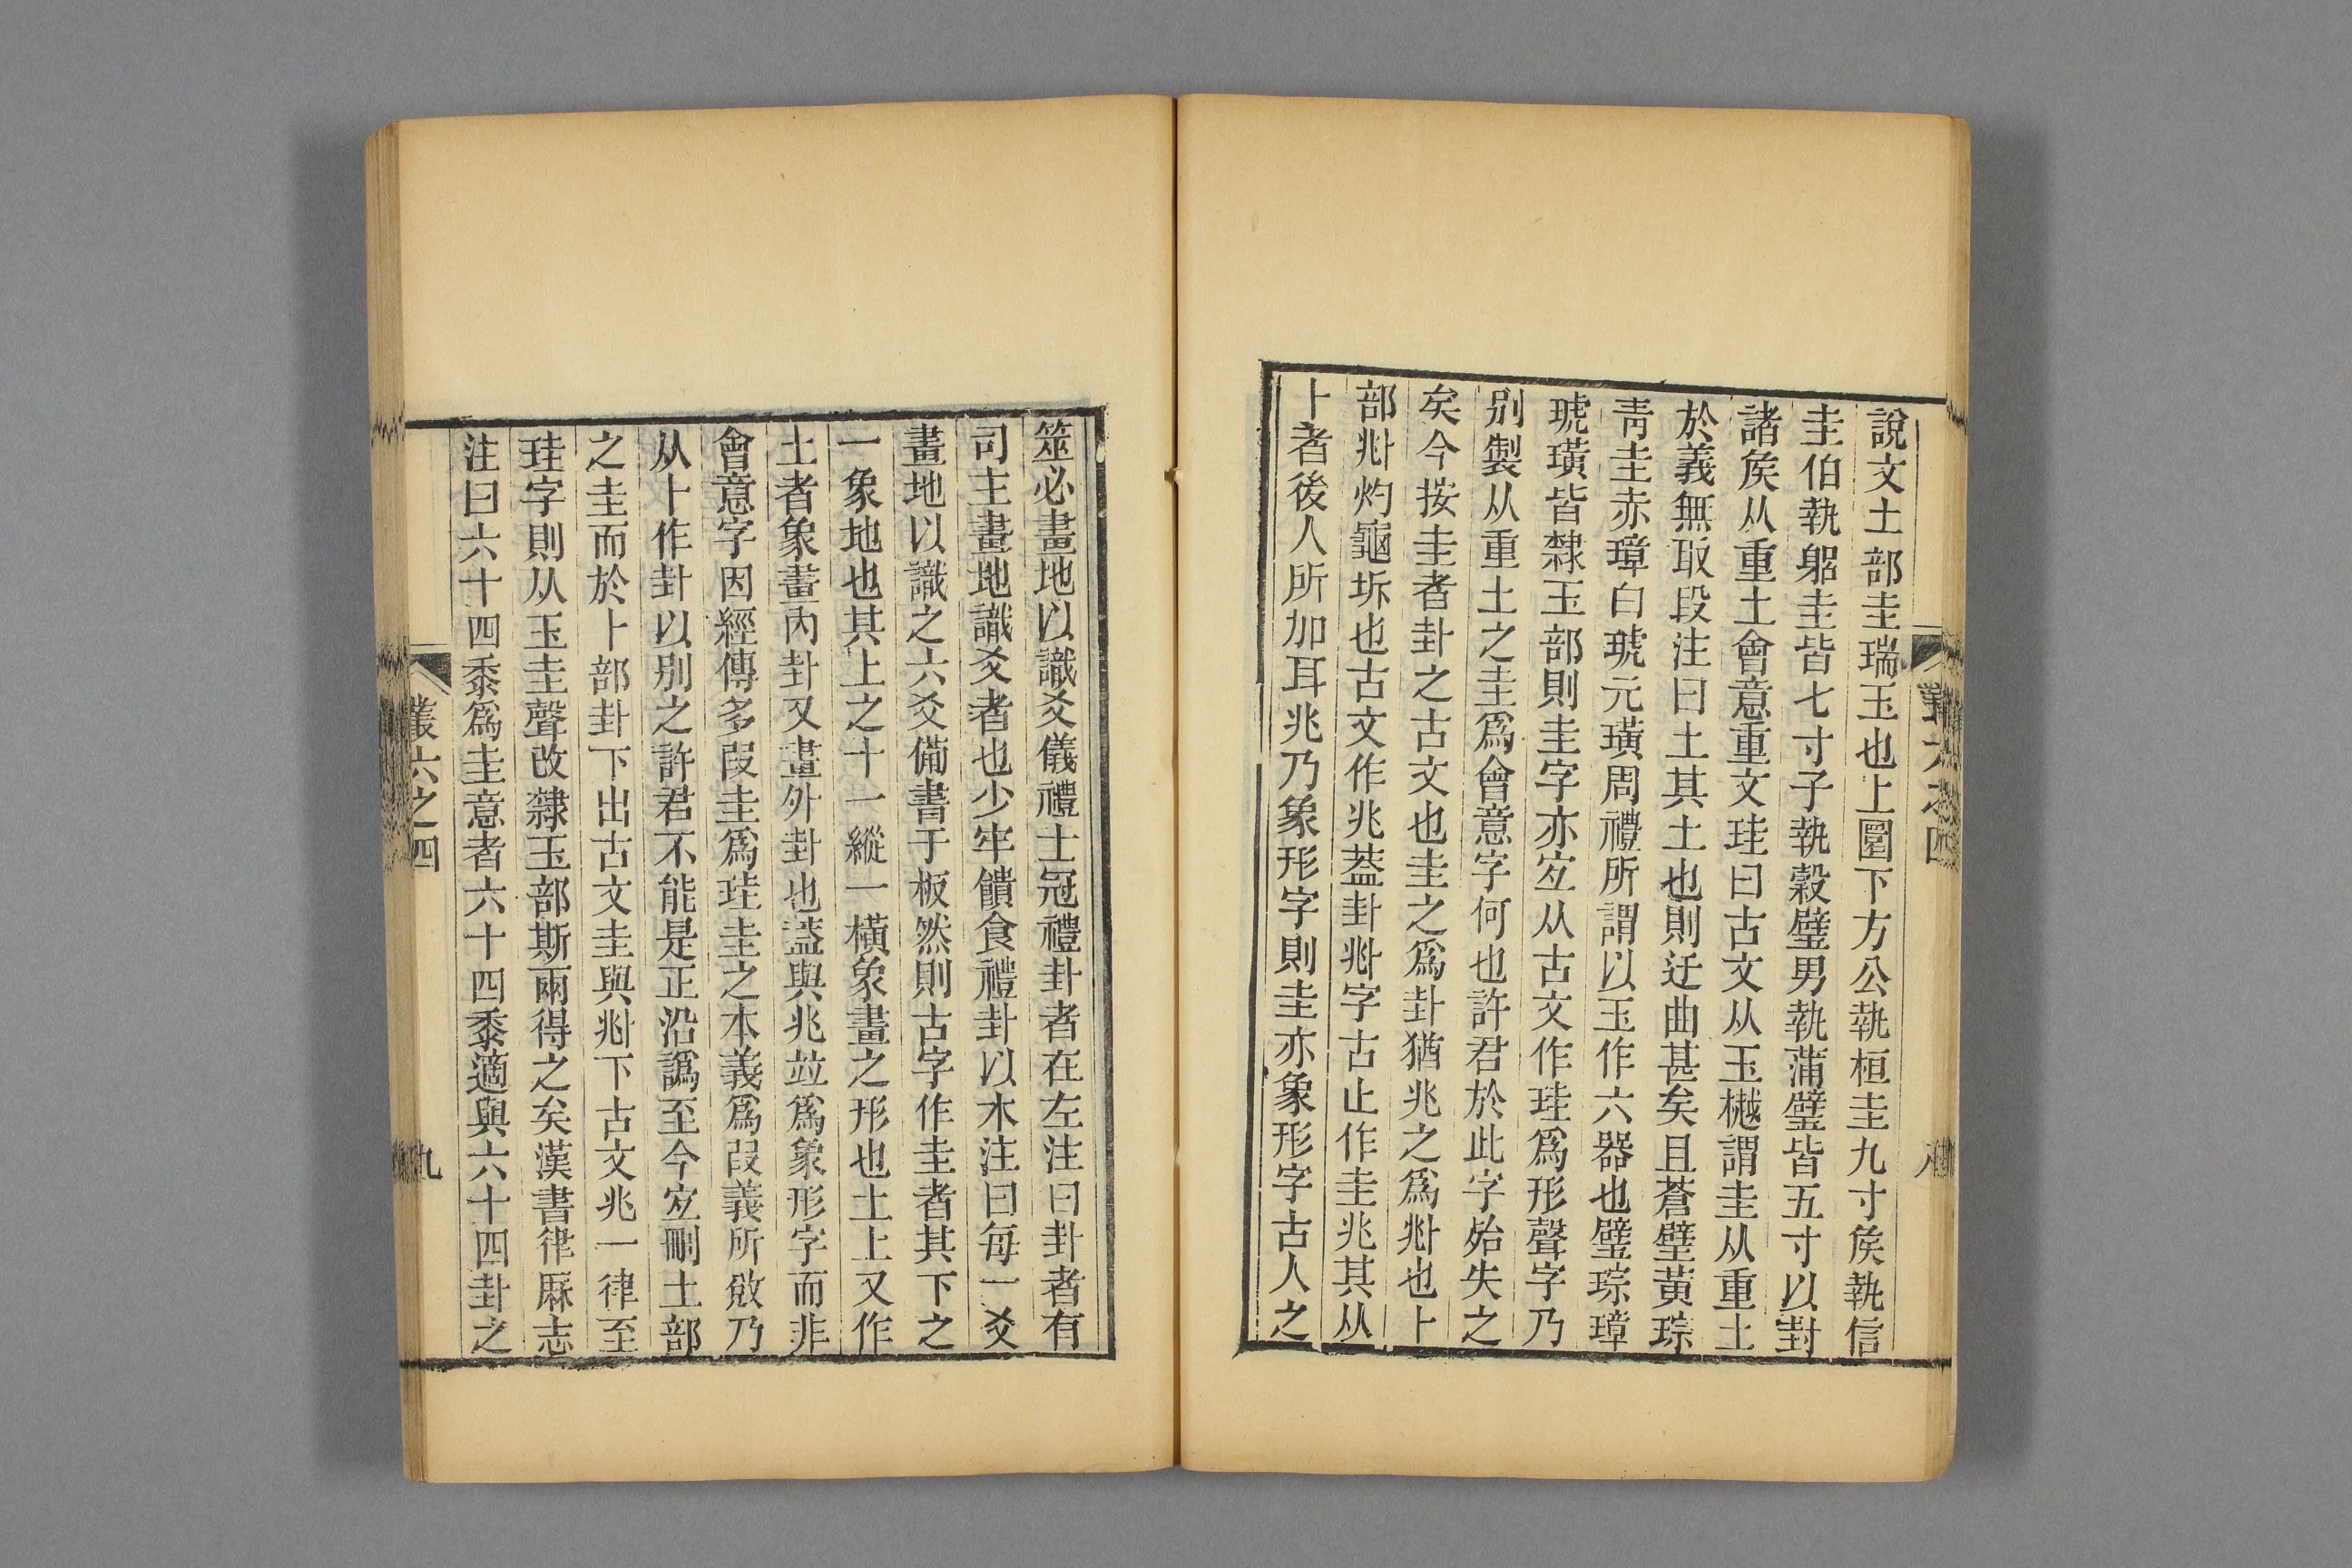 說文土部圭瑞玉也上圜下方公執桓圭九寸矦執信
圭伯執躬圭皆七寸子執穀璧男執蒲璧皆五寸以封
諸矦从重土會意重文珪曰古文从玉樾謂圭从重土
於義無取段注曰土其土也則迂曲甚矣且蒼璧黃琮
靑圭赤璋白琥元璜周禮所謂以玉作六器也璧琮璋
琥璜皆隸玉部則圭字亦宐从古文作珪爲形聲字乃
別製从重土之圭爲會意字何也許君於此字殆失之
矣今按圭者卦之古文也圭之爲卦猶兆之爲𠧞也卜
部𠧞灼龜坼也古文作兆葢卦𠧞字古止作圭兆其从
卜者後人所加耳兆乃象形字則圭亦象形字古人之
叢六之四
筮必畫地以識爻儀禮士冠禮卦者在左注曰卦者有
司主畫地識爻者也少牢饋食禮卦以木注曰每一爻
畫地以識之六爻備書于板然則古字作圭者其下之
一象地也其上之十一縱一橫象畫之形也土上又作
土者象畫內卦又畫外卦也葢與兆竝爲象形字而非
會意字因經傳多叚圭爲珪圭之本義爲叚義所敓乃
从卜作卦以別之許君不能是正沿譌至今宐刪土部
之圭而於卜部卦下出古文圭與𠧞下古文兆一律至
珪字則从玉圭聲改隸玉部斯兩得之矣漢書律厤志
注曰六十四黍爲圭意者六十四黍適與六十四卦之
叢六之四
九